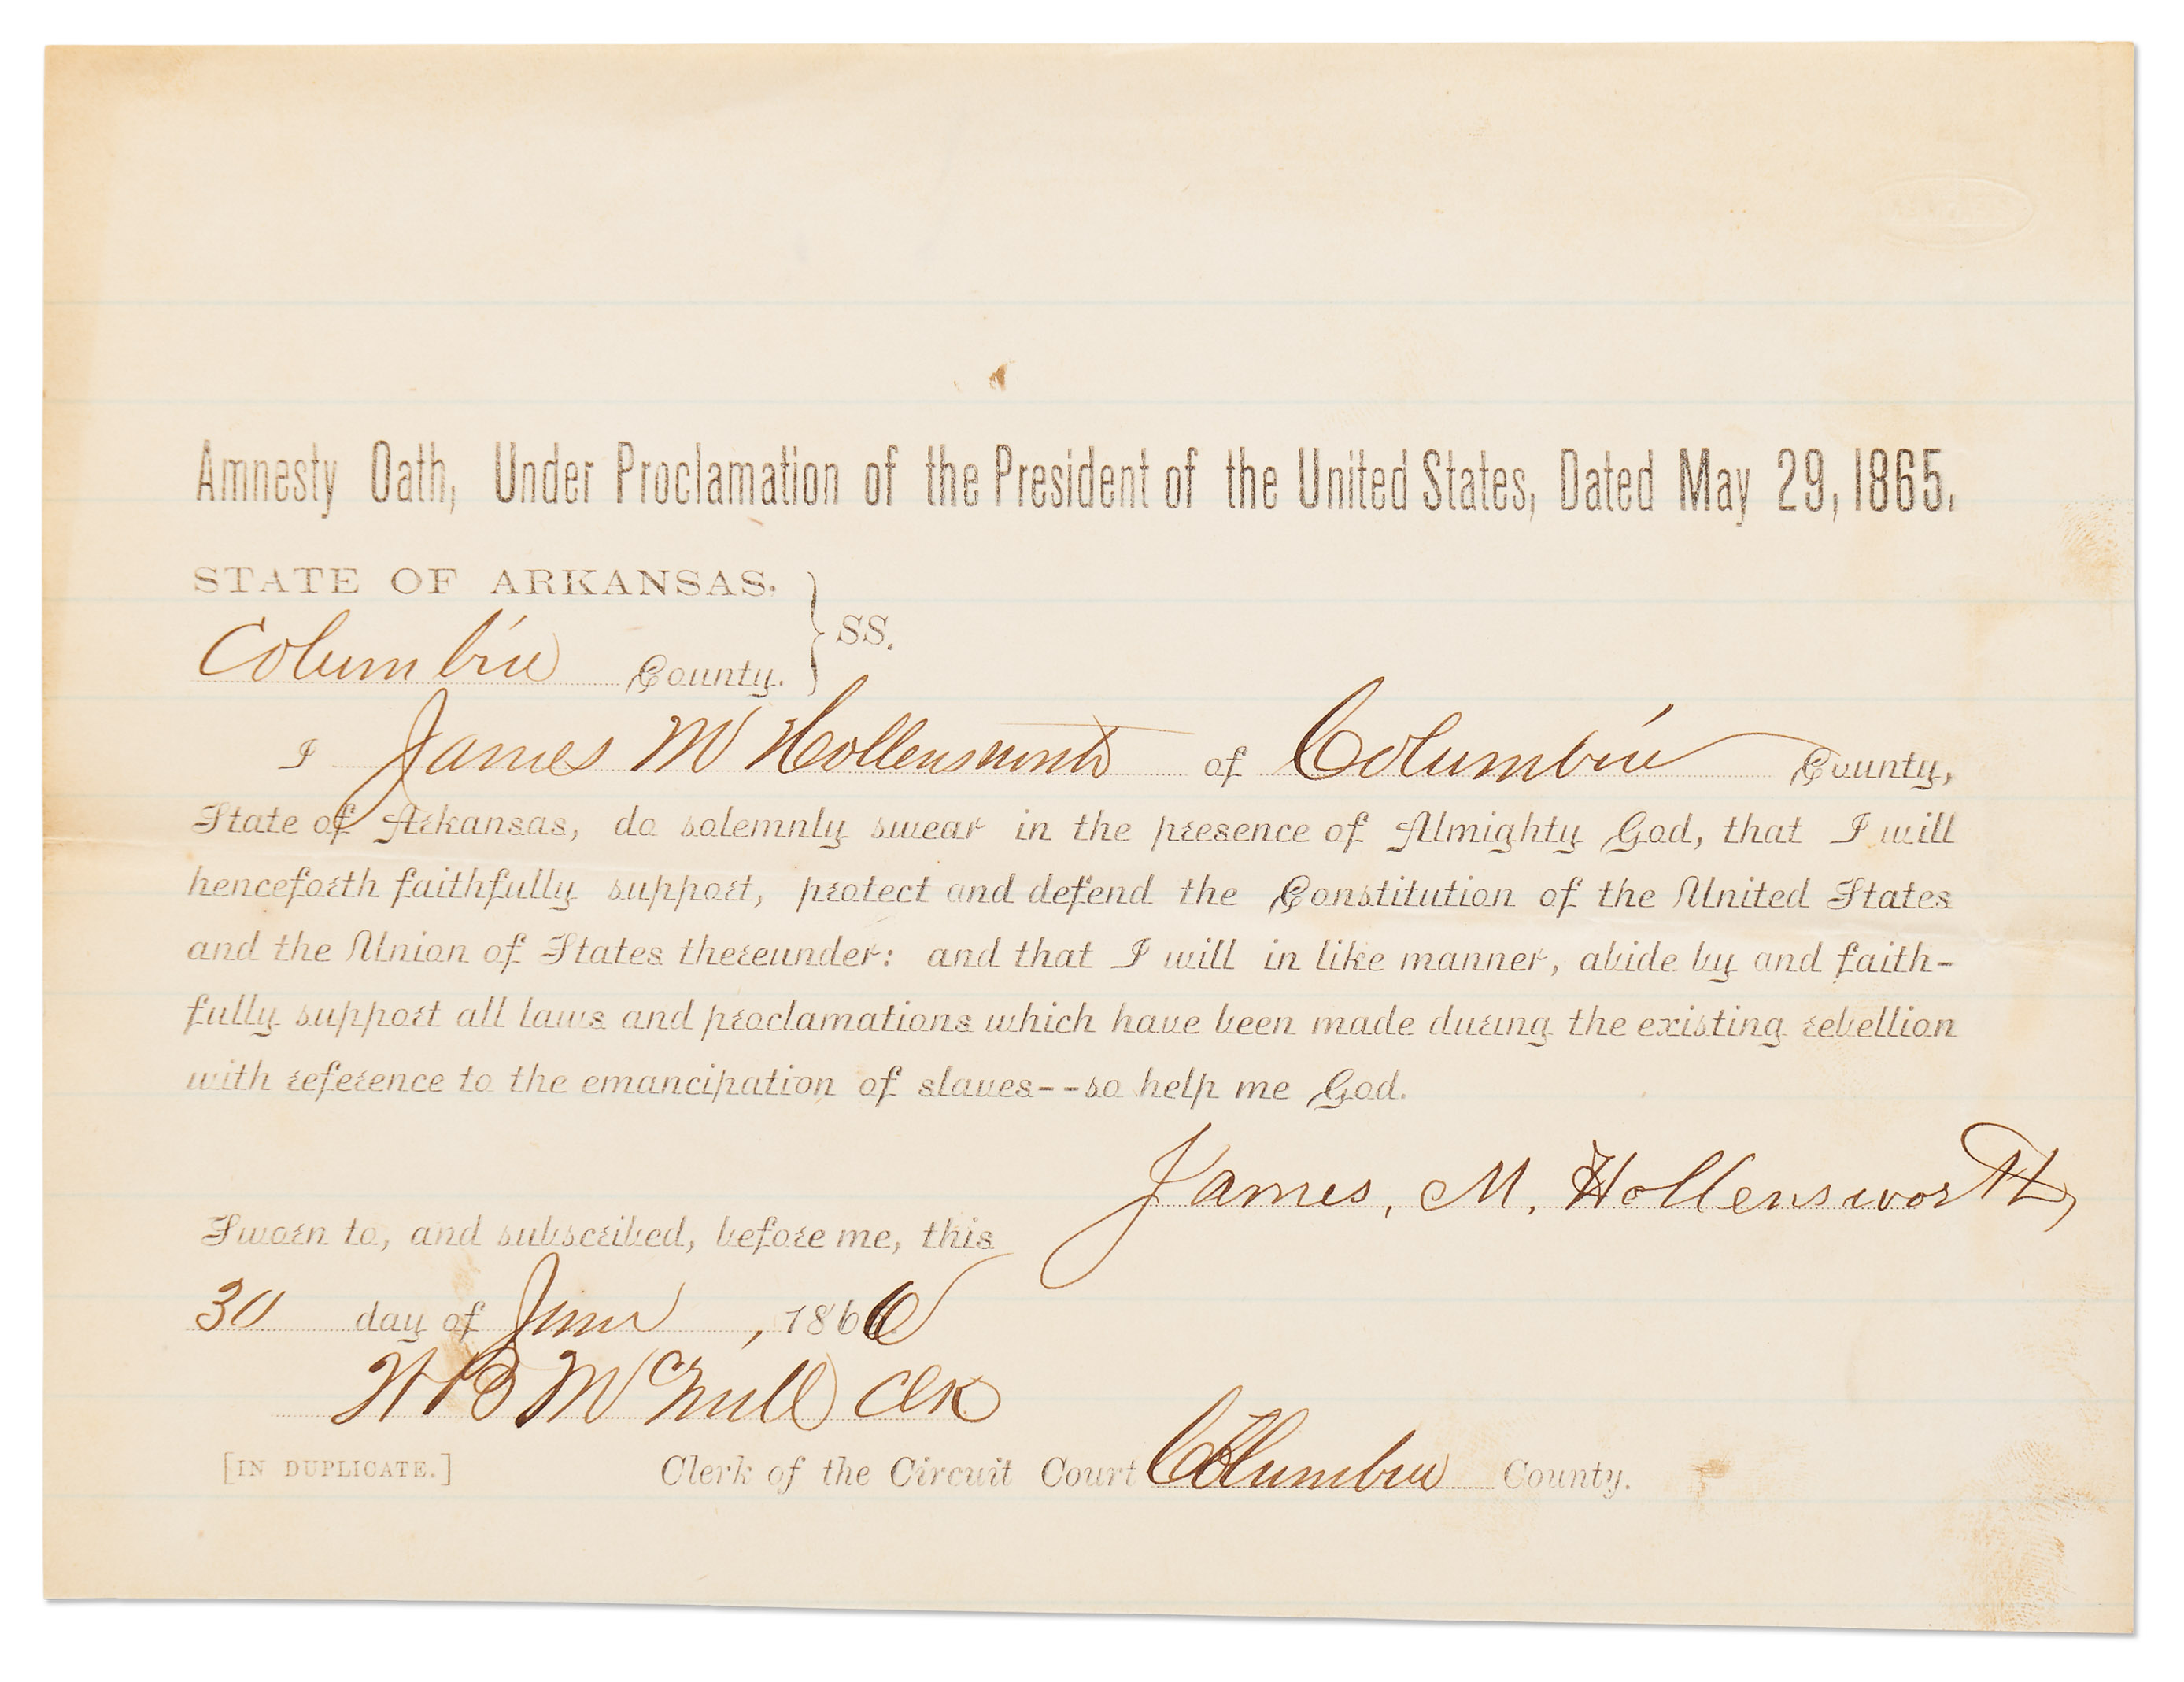 Amnesty Oath, Under Proclamation of the President of the United States, Dated May 29, 1865.
STATE OF ARKANSAS. } SS.
Columbia County.
I James M Hollensworth of Columbia County,
State of Arkansas, do solemnly swear in the presence of Almighty God, that I will
henceforth faithfully support, protect and defend the Constitution of the United States
and the Union of States thereunder: and that I will in like manner, abide by and faith-
fully support all laws and proclamations which have been made during the existing rebellion
with reference to the emancipation of slaves--so help me God.
James, M. Hollensworth,
Sworn to, and subscribed, before me, this
30 day of June, 1866
McNeill Clk
[IN DUPLICATE.] Clerk of the Circuit Court Columbia County.